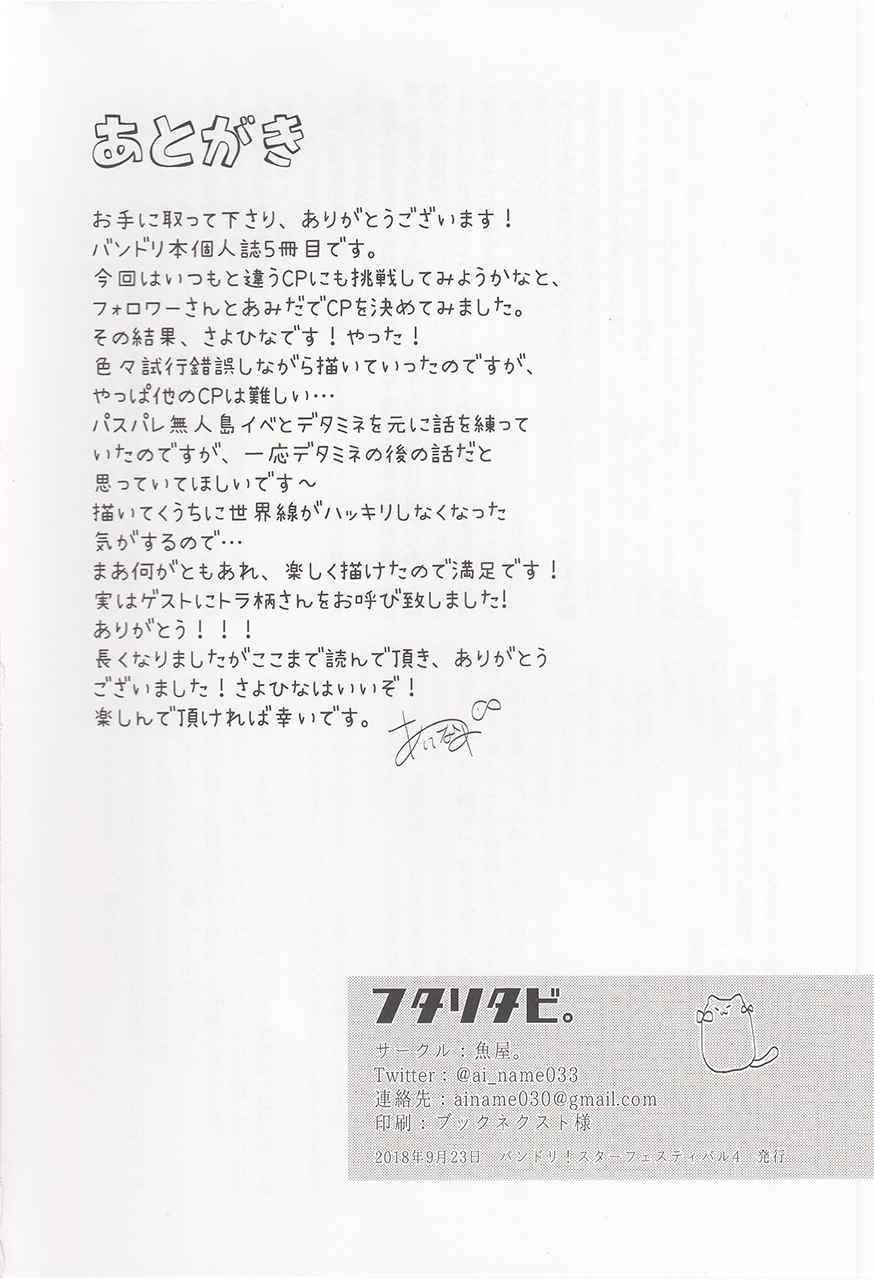 あとがき
お手に取って下さり、ありがとうございます！
バンドリ本個人誌5冊目です。
今回はいつもと違うCPにも挑戦してみようかなと、
フォロワーさんとあみだでCPを決めてみました。
その結果、さよひなです！やった！
色々試行錯誤しながら描いていったのですが、
やっぱ他のCPは難しい…
パスパレ無人島イベとデタミネを元に話を練って
いたのですが、一応デタミネの後の話だと
思っていてほしいです～
描いてくうちに世界線がハッキリしなくなった
気がするので…
まあ何がともあれ、楽しく描けたので満足です！
実はゲストにトラ柄さんをお呼び致しました!
ありがとう！！！
長くなりましたがここまで読んで頂き、ありがとう
ございました！さよひなはいいぞ！
楽しんで頂ければ幸いです。
フタリタビ。
サークル：魚屋。
Twitter：@ai_name033
連絡先：ainame030@gmail.com
印刷：ブックネクスト様
2018年9月23日　バンドリ！スターフェスティバル4　発行